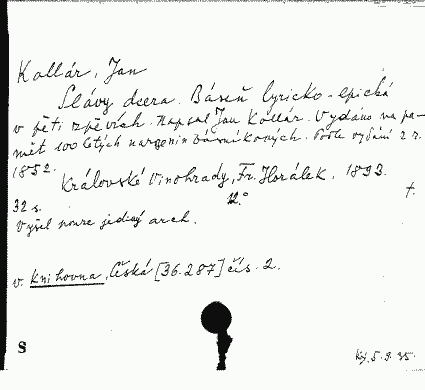 Kollár, Jan
Slávy dcera. Báseň lyricko-epická
v pěti zpěvích. Napsal Jan Kollár. Vydáno na pa-
mět 100 letých narozenin básníkových. Podle vydání z r.
1852.
Královské Vinohrady, Fr. Horálek, 1893.
32 s. 12° †.
Vyšel pouze jediný arch.
v. Knihovna, Česká [36.287] čís. 2.
S
5.9.35.